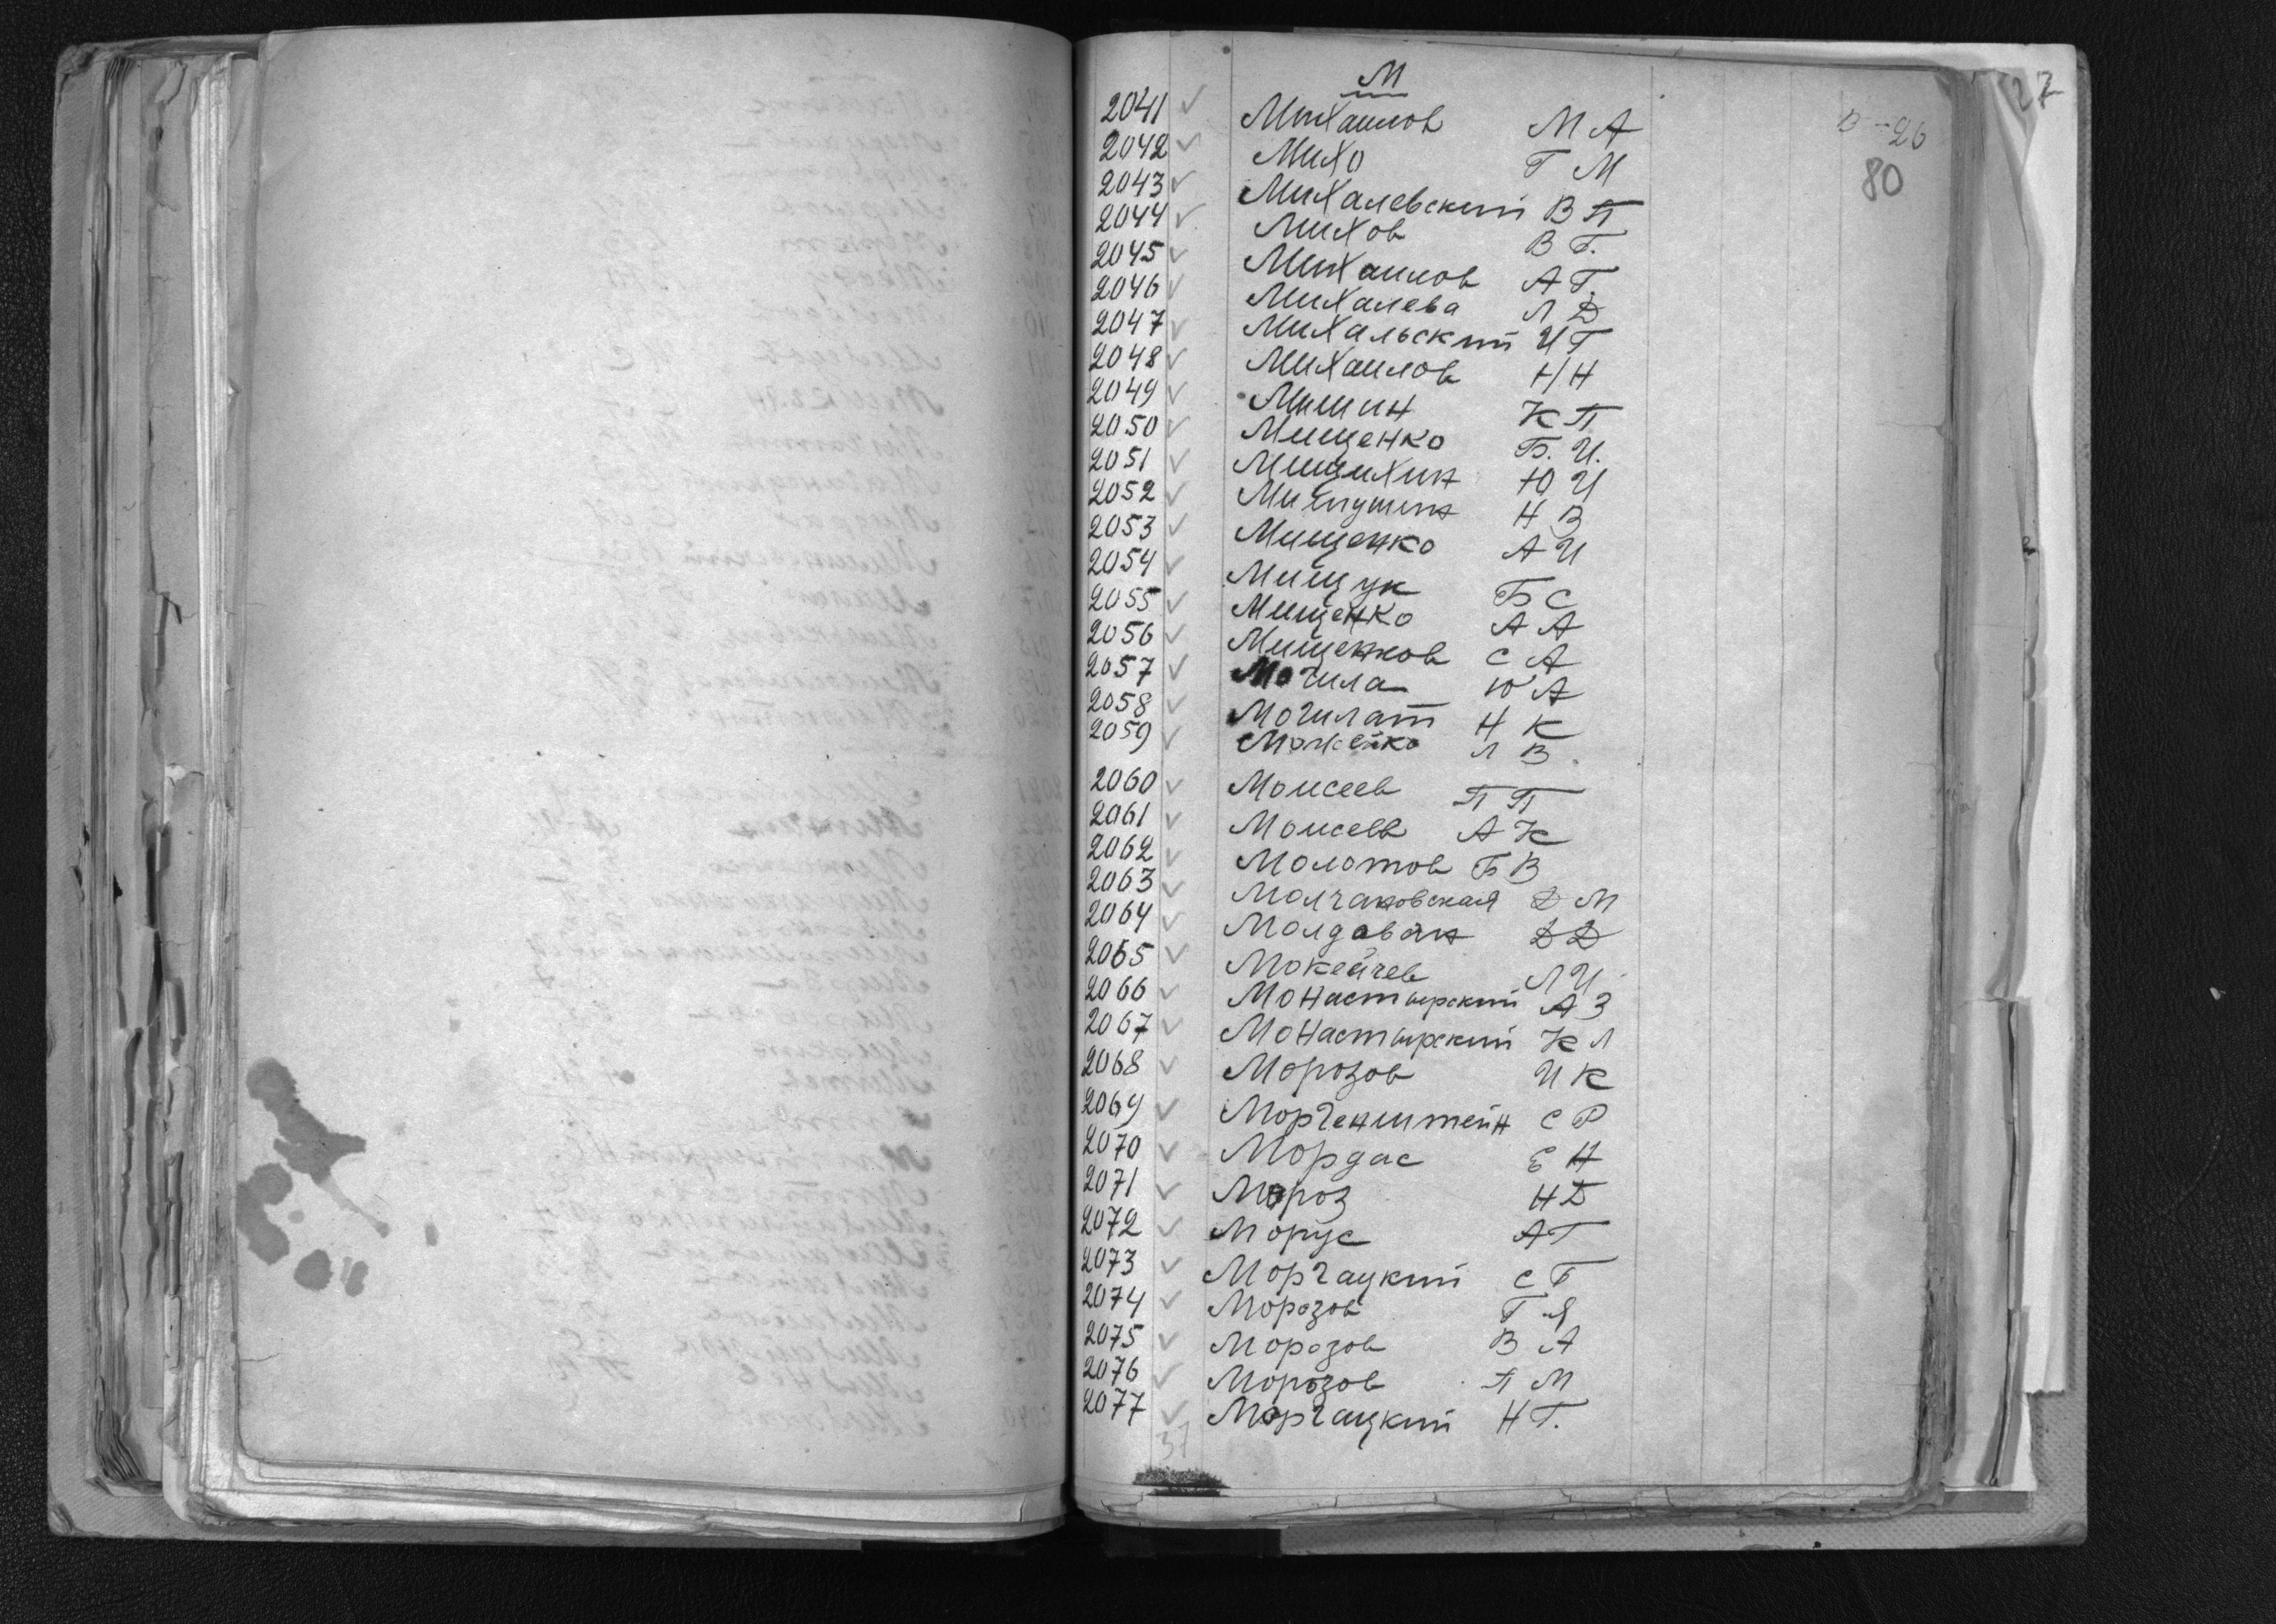 27
М
80
2041 ✓ Михаилов М А
2042 ✓ Михо Г М
2043 ✓ Михалевский В П
2044 ✓ Михов В Г.
2045 ✓ Михаилов А Г.
2046 ✓ Михалева Л Д
2047 ✓ Михальский И Г
2048 ✓ Михаилов Н Н
2049 ✓ Мишин К П
2050 ✓ Мищенко Б. И.
2051 ✓ Мищихин Ю И
2052 ✓ Н В
2053 ✓ Мищенко А И
2054 ✓ Мищук Б С
2055 ✓ Мищенко А А
2056 ✓ Мищенков С А
2057 ✓ Могила Ю А
2058 ✓ Могилат Н К
2059 ✓ Можейко Л В.
2060 ✓ Моисеев П П
2061 ✓ Моисеев А К
2062 ✓ Молотов Б В
2063 ✓ Молчановская Д М
2064 ✓ Молдаван Д Д
2065 ✓ Мокейчев Л И
2066 ✓ Монастырский А З
2067 ✓ Монастырский К Л
2068 ✓ Морозов И К
2069 ✓ Моргенштейн С Р
2070 ✓ Мордас Е Н
2071 ✓ Мороз Н Д
2072 ✓ Морус А Г
2073 ✓ Моргацкий С Г
2074 ✓ Морозов Г Я
2075 ✓ Морозов В А
2076 ✓ Морозов П М
2077 ✓ Моргацкий Н Г.
37